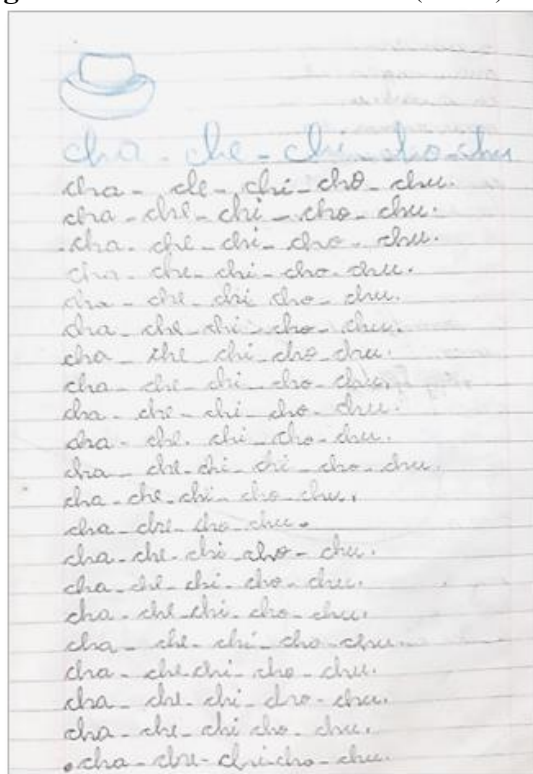 cha - che - chi - cho - chu
cha - che - chi - cho - chu.
cha - che - chi - cho - chu.
cha - che - chi - cho - chu.
cha - che - chi - cho - chu.
cha - che - chi cho - chu.
cha - che - chi - cho - chu.
cha - che chi - cho - chu.
cha - che - chi - cho - chu.
cha - che - chi - cho - chu.
cha - che - chi - cho - chu.
cha - che - chi - chi - cho - chu.
cha - che - chi - cho - chu.
cha - che - cho - chu.
cha - che - chi - cho - chu.
cha - che - chi - cho - chu.
cha - che - chi - cho - chu.
cha - che - chi - cho - chu.
cha - che chi - cho - chu.
cha - che - chi - cho - chu.
cha - che - chi cho - chu.
cha - che - chi - cho - chu.